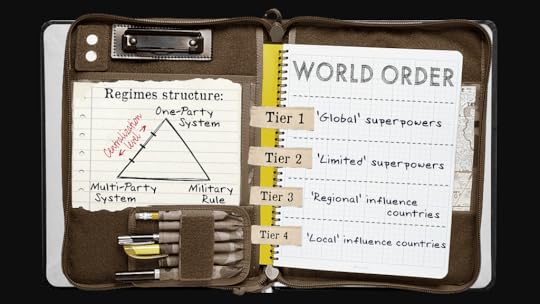 Regimes structure:
One-Party
System
Centralization
level
Multi-Party
System
Military
Rule
WORLD ORDER
Tier 1
'Global' superpowers
Tier 2
'Limited' superpowers
Tier 3
'Regional' influence
countries
Tier 4
'Local' influence countries